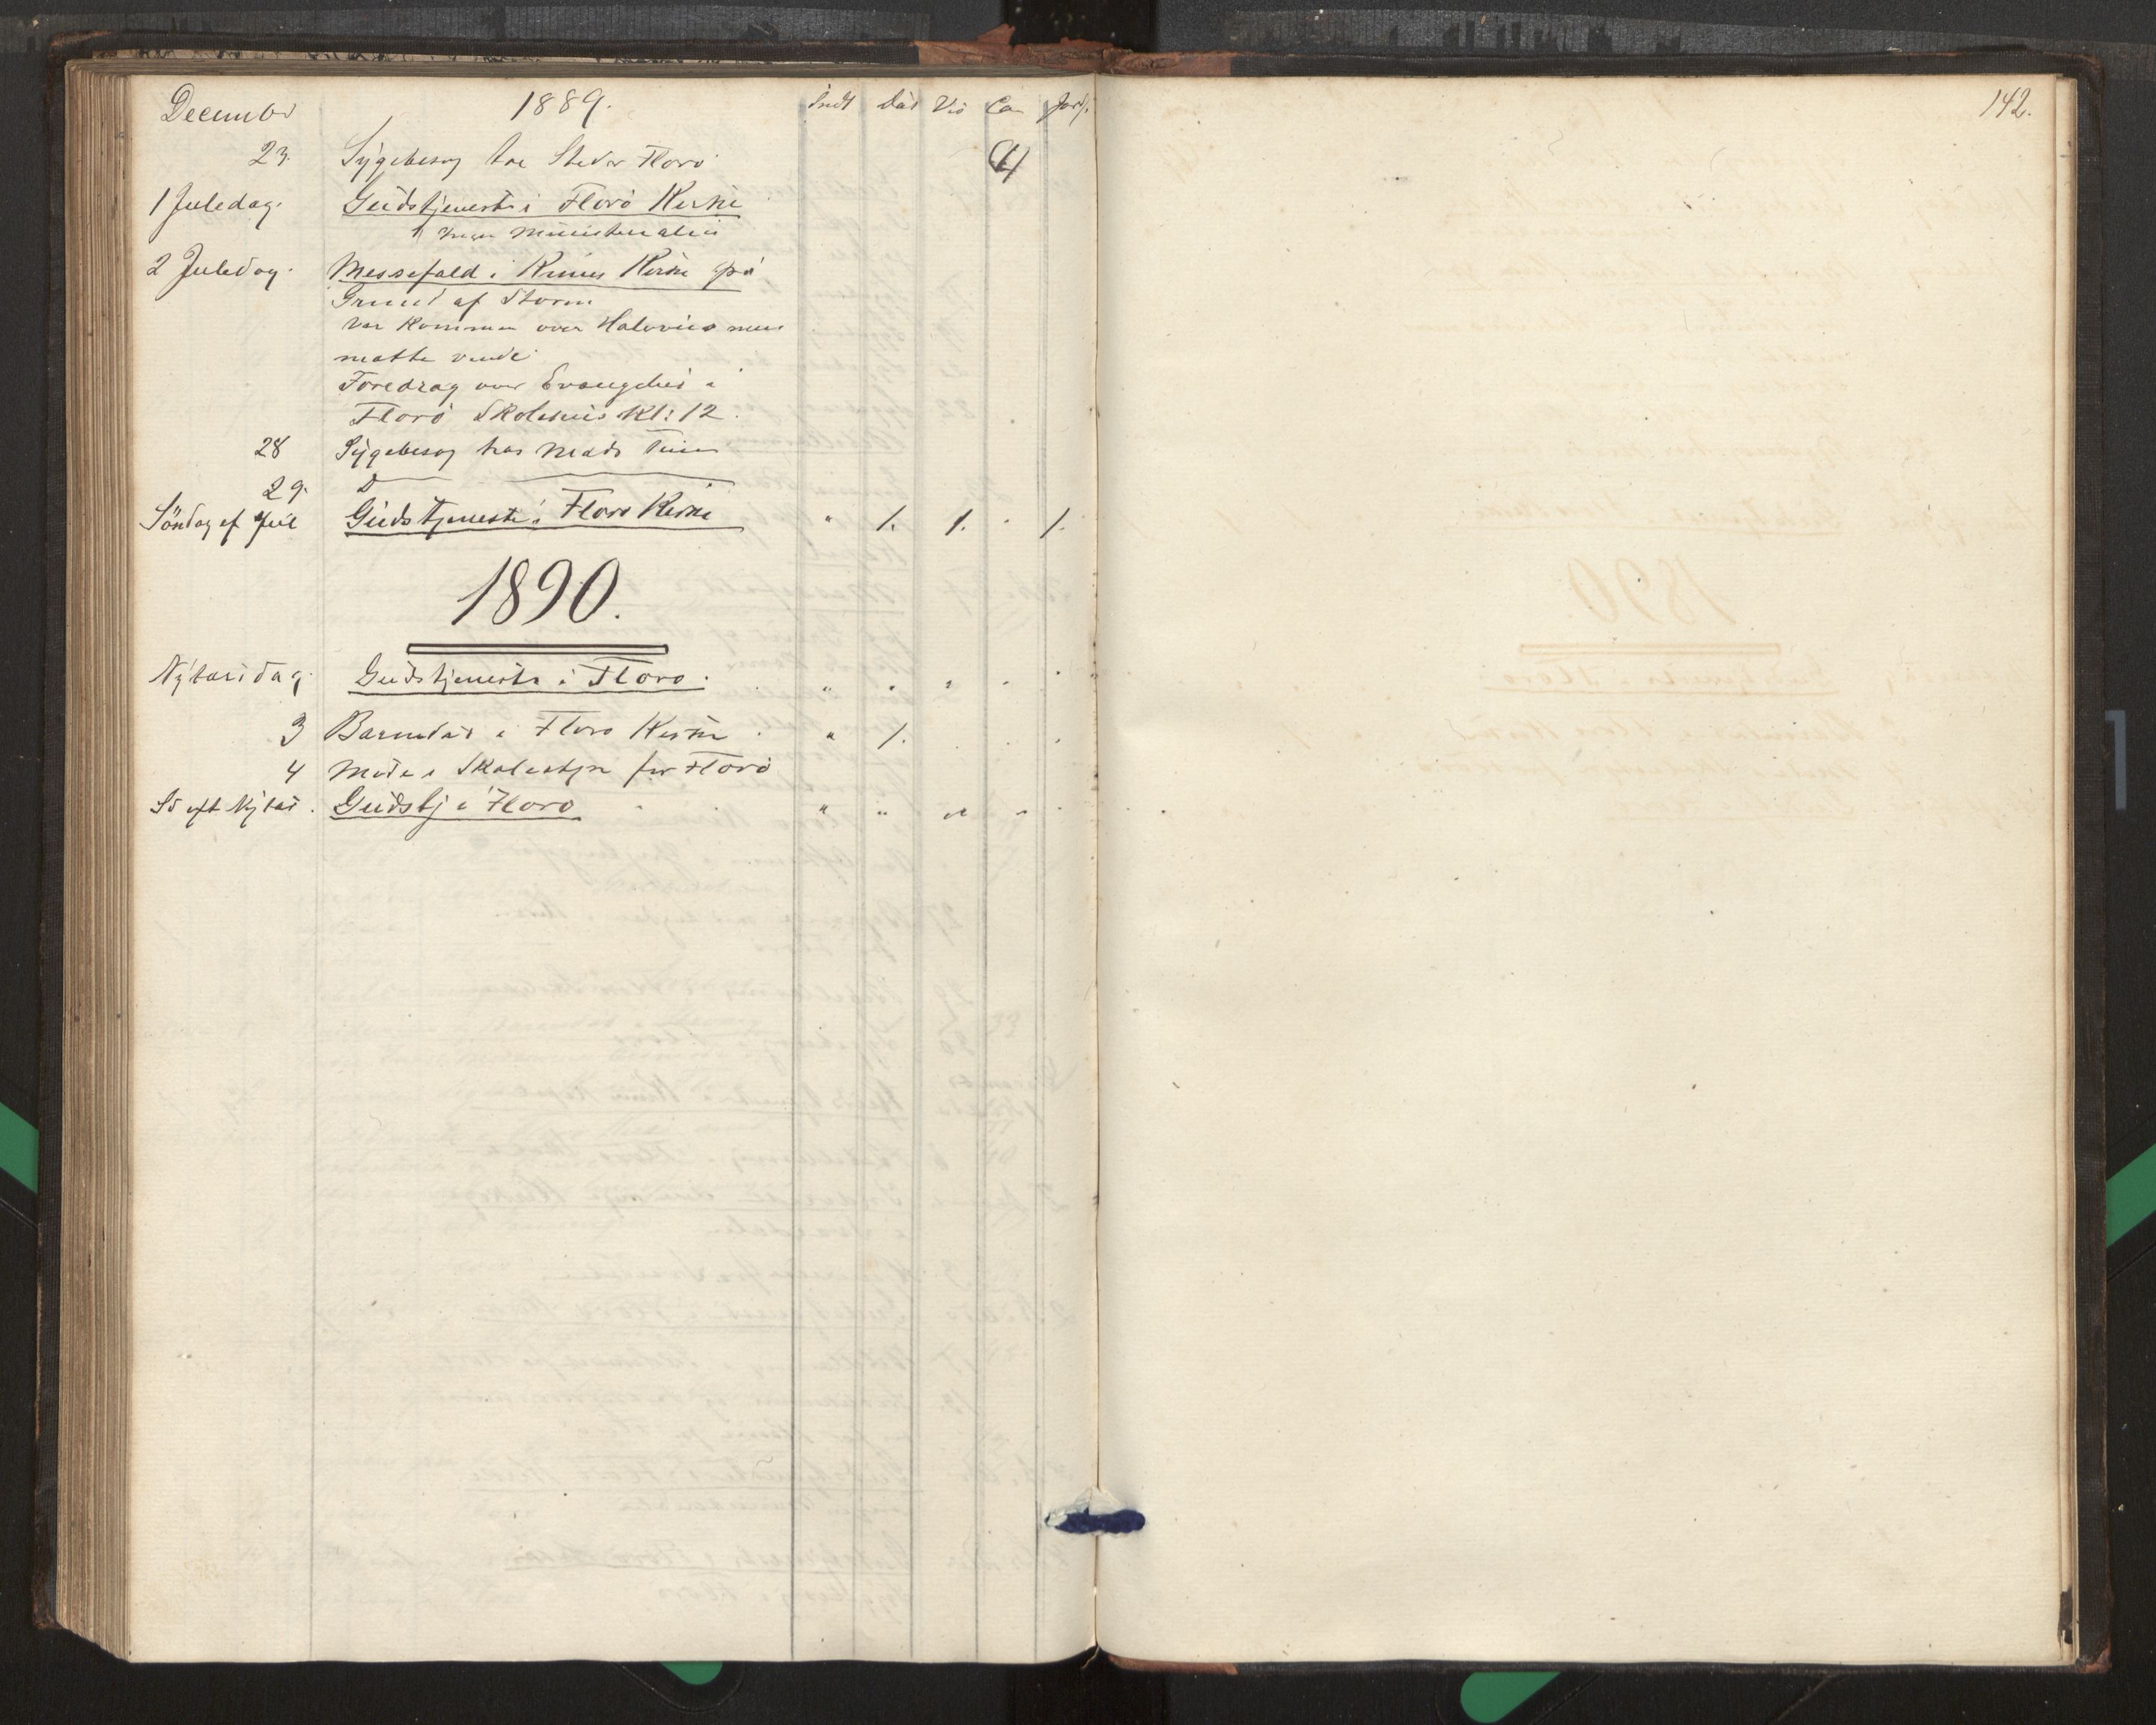 December 1889. Indt Daab Vis Co Jordf.
23. Sygebesøg to Steder Florø (4)
1 Juledag. Gudstjeneste i Florø Kirke
Ingen Ministerialia
2 Juledag. Messefald i Kinns Kirke på
Grund af Storm
Var kommen over men
måtte vende.
Foredrag over Evangeliet i
Florø Skolehuus Kl: 12.
28 Sygebesøg hos Mads
29. D
Söndag ef Jul Gudstjeneste i Florø Kirke " 1. 1. " 1.
1890.
Nytårsdag. Gudstjeneste i Florø. " " " " "
3 Barnedåb i Florø Kirke. " 1. . . .
4 Møde i Skolestyre for Florø
Sö eft Nytår. Gudstj i Florø " " " " "
142.